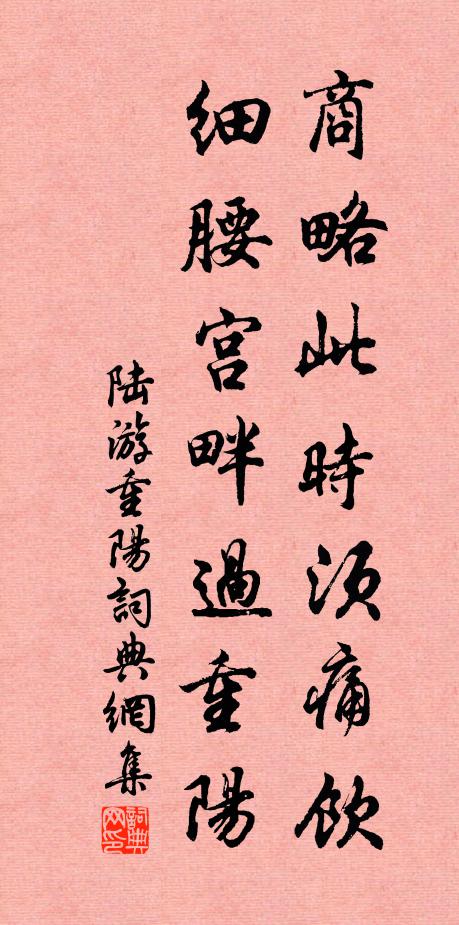 商略此時須痛飲
細腰宮畔過重陽
陸游重陽詞典網集
詞典網印